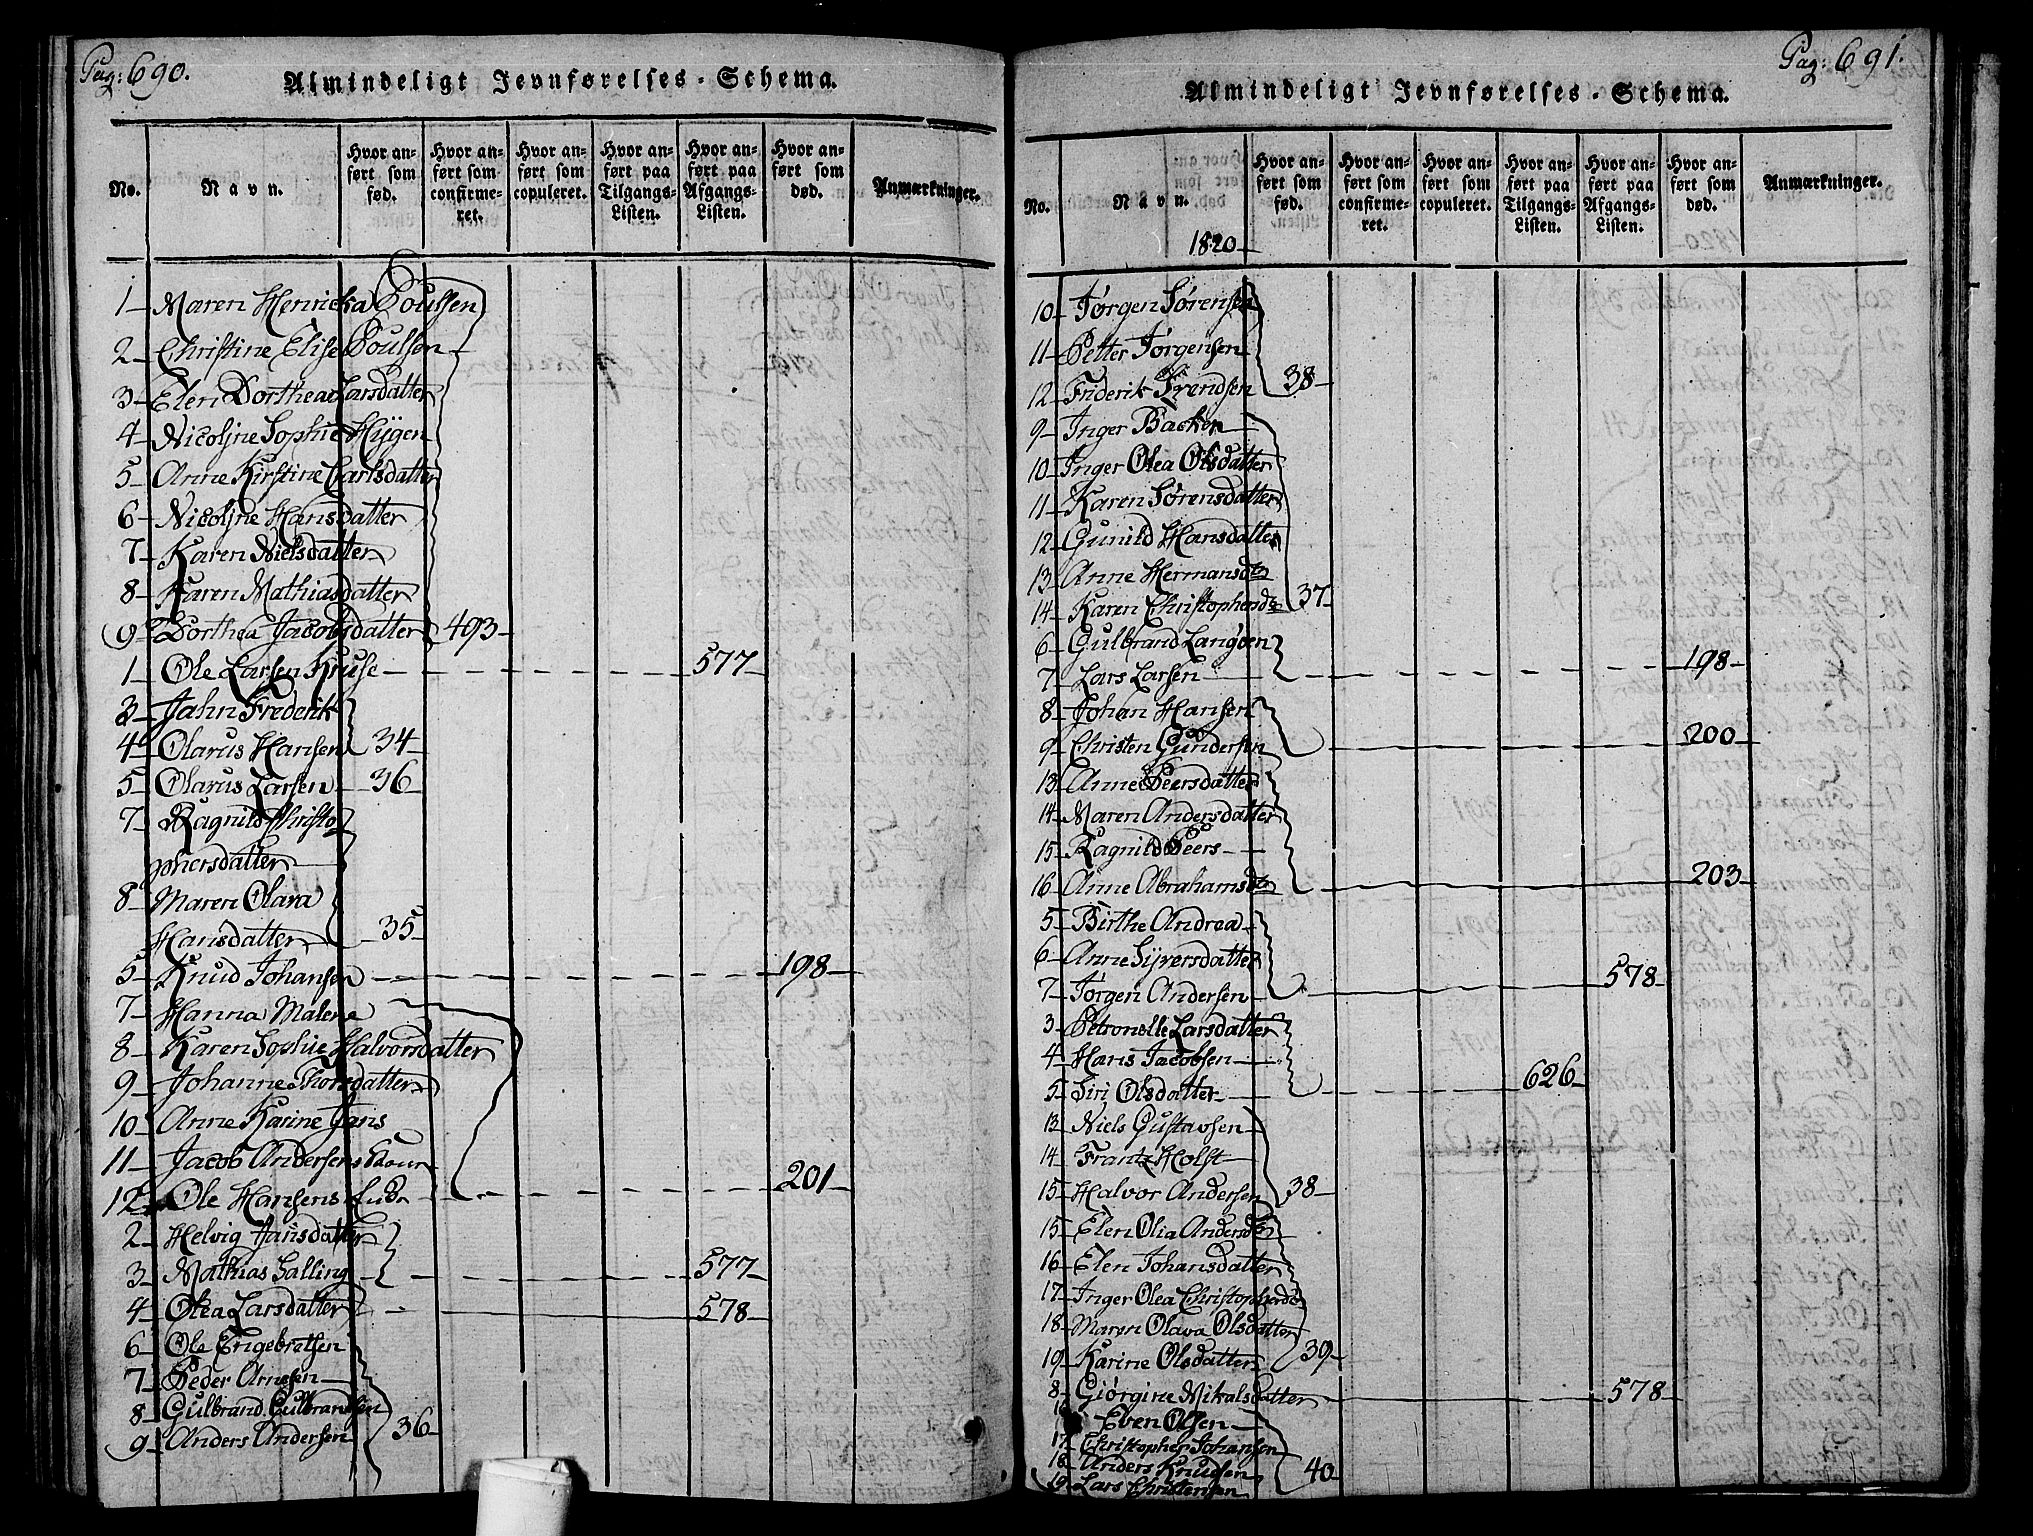 Pag: 690.
Almindeligt Jevnførelses-Schema.
No.
Navn.
Hvor anført som fød.
Hvor anført som confirmeret.
Hvor anført som copuleret.
Hvor anført paa Tilgangs-Listen.
Hvor anført paa Afgangs-Listen.
Hvor anført som død.
Anmærkninger.
1 Maren Henricka Poulsen
2 Christine Elise Poulsen
3 Elen Dorthea Larsdatter
4 Nicoljne Sophie Hygen
5 Anne Kirstine Carlsdatter
6 Nicoljne Hansdatter
7 Karen Nielsdatter
8 Karen Mathiasdatter
9 Dorthea Jacobsdatter 493
1 Ole Larsen Kruse 577
3 Jahn Frederik
4 Olarus Hansen 34
5 Olarus Larsen 36
7 Ragnild Christo
phersdatter
8 Maren Olava
Hansdatter 35
5 Knud Johansen 198
7 Hanna Malene
8 Karen Sophie Halvorsdatter
9 Johanne Thorsdatter
10 Anne Karine Jans
11 Jacob Andersens
12 Ole Hansens 201
2 Helvig Jansdatter
3 Mathias Salling 577
4 Olea Larsdatter 578
6 Ole Engebretsen
7 Peder Arnesen
8 Gulbrand Gulbransen
9 Anders Andersen 36
Pag: 691.
Almindeligt Jevnførelses-Schema.
No.
Navn.
Hvor anført som fød.
Hvor anført som confirmeret.
Hvor anført som copuleret.
Hvor anført paa Tilgangs-Listen.
Hvor anført paa Afgangs-Listen.
Hvor anført som død.
Anmærkninger.
1820
10 Jørgen Sørensen
11 Petter Jørgensen
12 Friderik Frendsen 38
9 Inger Backen
10 Inger Olea Olsdatter
11 Karen Sørensdatter
12 Gunild Hansdatter
13 Anne Hermansdtr
14 Karen Christophersdtr 37
6 Gulbrand Langøen
7 Lars Larsen 198
8 Johan Hansen
9 Christen Gundersen 200
13 Anne Peersdatter
14 Maren Andersdatter
15 Ragnild Peers
16 Anne Abrahamsdtr 203
5 Birthe Andrea
6 Anne Syversdatter
7 Jørgen Andersen 578
3 Petronelle Larsdatter
4 Hans Jacobsen
5 Siri Olsdatter 626
13 Niels Gustavsen
14 Frantz Holst
15 Halvor Andersen 38
15 Elen Olia Andersdtr
16 Elen Johansdatter
17 Inger Olea Christophersdtr
18 Maren Olava Olsdatter
19 Karine Olsdatter 39
8 Giørgine Nikalsdatter 578
Even Olsen
17 Christopher Johansen
18 Anders Knudsen 40
19 Lars Christensen